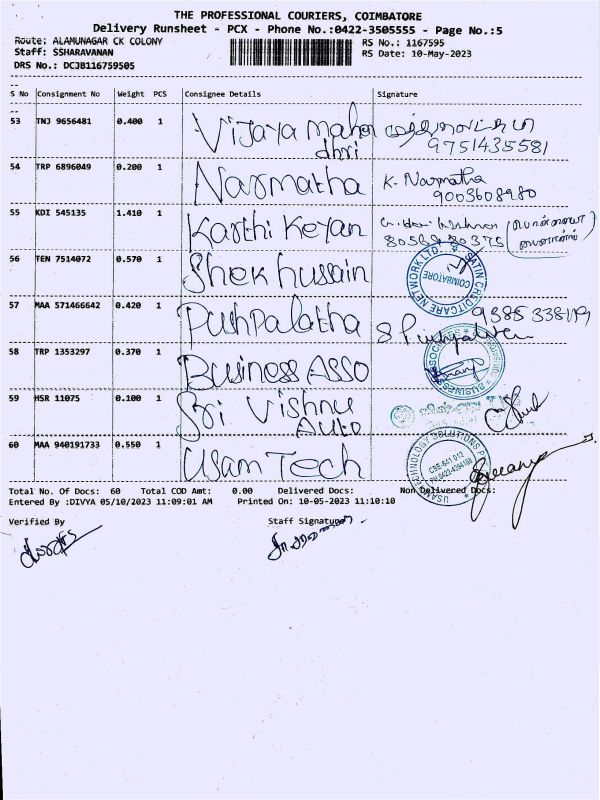 THE PROFESSIONAL COURIERS, COIMBATORE
Delivery Runsheet - PCX - Phone No.:0422-3505555 - Page No.:5
Route: ALAMUNAGAR CK COLONY RS No.: 1167595
Staff: SSHARAVANAN RS Date: 10-May-2023
DRS No.: DCJB116759505
S No Consignment No Weight PCS Consignee Details Signature
53 TNJ 9656481 0.400 1 Vijaya Maha
dhri 9751435581
54 TRP 6896049 0.200 1 Narmatha K. Narmatha
9003608980
55 KDI 545135 1.410 1 Karthi Keyan
56 TEN 7514072 0.570 1 Shek hussain SATIN CREDITCARE NETWORK LTD. COIMBATORE
57 MAA 571466642 0.420 1 Pushpalatha
58 TRP 1353297 0.370 1 Business Asso
59 HSR 11075 0.100 1 Sri Vishnu
Auto
60 MAA 940191733 0.550 1 Usam Tech
Total No. Of Docs: 60 Total COD Amt: 0.00 Delivered Docs: Non Delivered Docs:
Entered By :DIVYA 05/10/2023 11:09:01 AM Printed On: 10-05-2023 11:10:10
Verified By Staff Signature